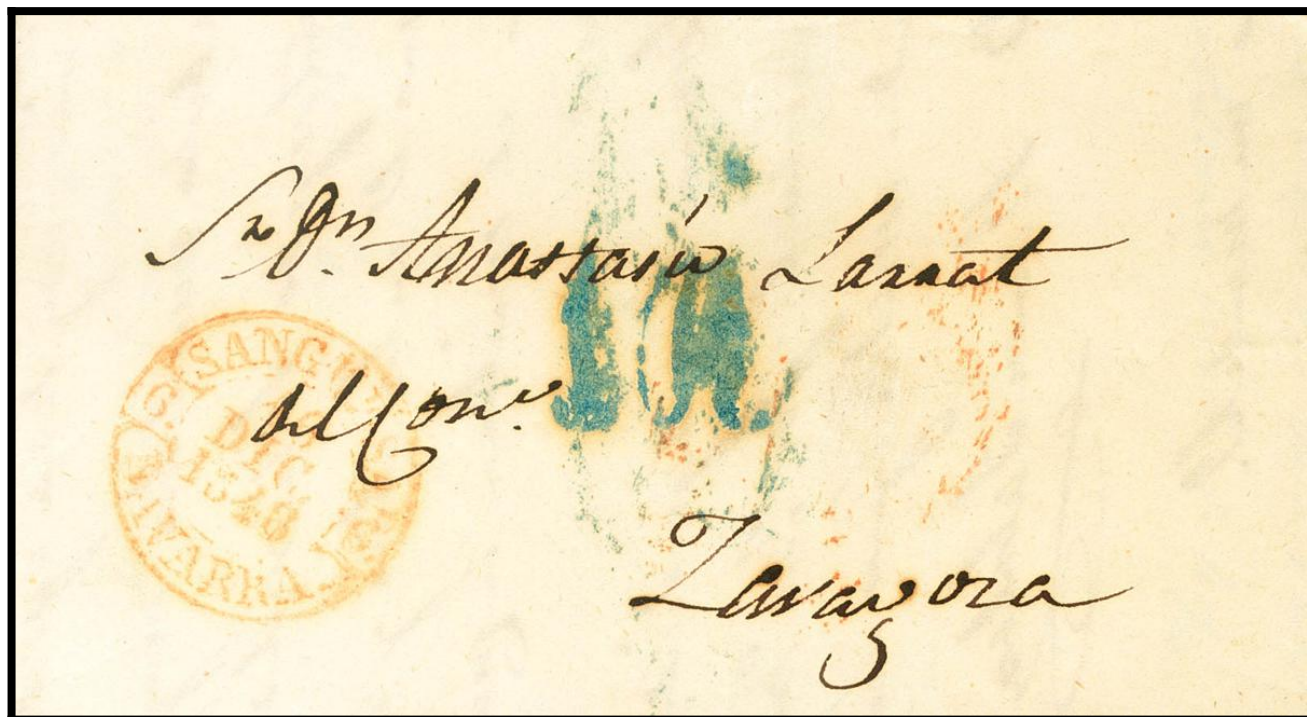 Sr Dn Anastasio Larrat
del Come
Zaragoza
SANGU
DIC
1848
NAVARRA